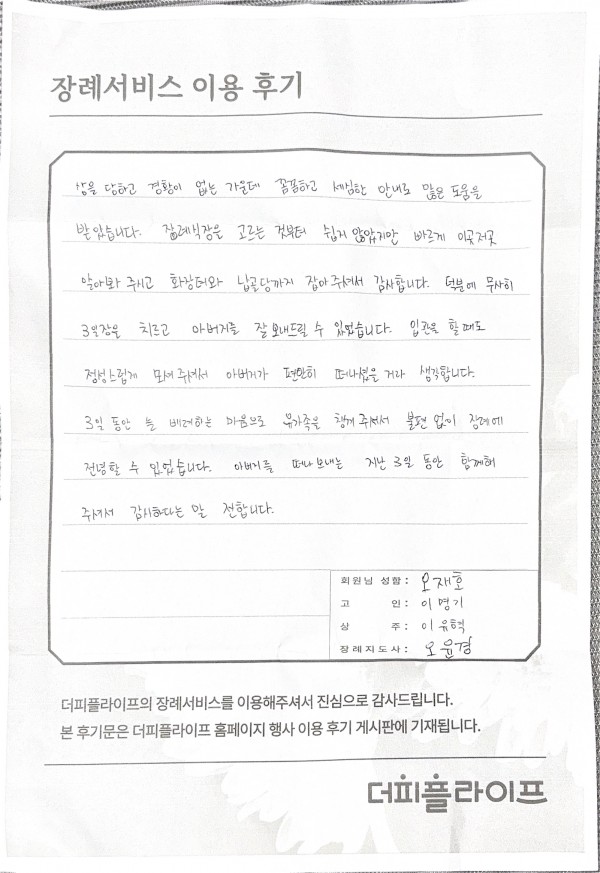 장례서비스 이용 후기
상을 당하고 경황이 없는 가운데 꼼꼼하고 세심한 안내로 많은 도움을
받았습니다. 장례식장을 고르는 것부터 쉽지 않았지만 빠르게 이곳저곳
알아봐 주시고 화장터와 납골당까지 잡아주셔서 감사합니다. 덕분에 무사히
3일장을 치르고 아버지를 잘 보내드릴 수 있었습니다. 입관을 할 때도
정성스럽게 모셔주셔서 아버지가 편안히 떠나셨을 거라 생각합니다.
3일 동안 늘 배려하는 마음으로 유가족을 챙겨주셔서 불편 없이 장례에
전념할 수 있었습니다. 아버지를 떠나보내는 지난 3일 동안 함께해
주셔서 감사하다는 말 전합니다.
회원님 성함: 오재호
고 인: 이명기
상 주: 이유혁
장례지도사: 오윤경
더피플라이프의 장례서비스를 이용해주셔서 진심으로 감사드립니다.
본 후기문은 더피플라이프 홈페이지 행사 이용 후기 게시판에 기재됩니다.
더피플라이프